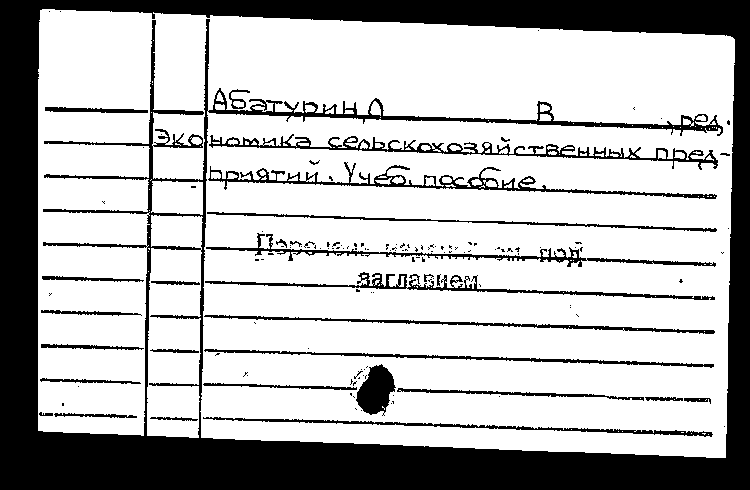 Абатурин, Л В , ред.
Экономика сельскохозяйственных пред-
приятий. Учеб. пособие.
Перечень изданий см. под
заглавием